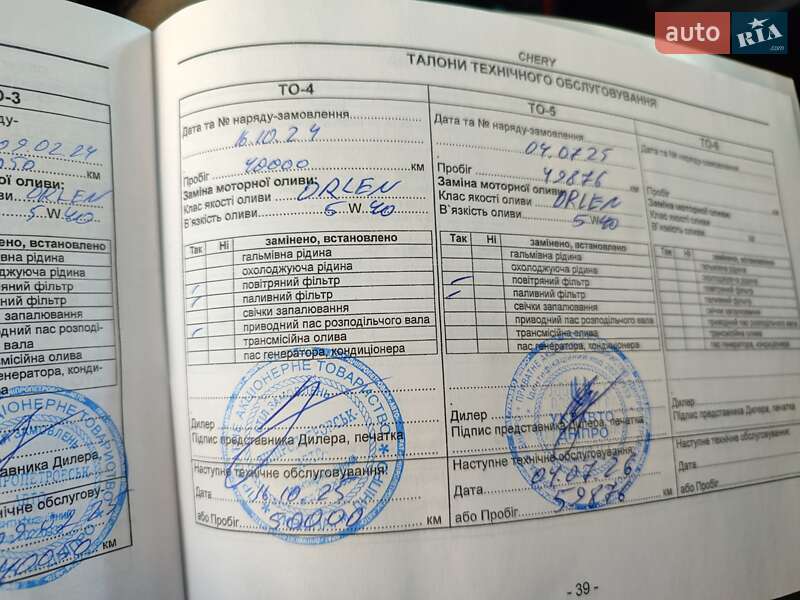 auto RIA.com
CHERY
ТАЛОНИ ТЕХНІЧНОГО ОБСЛУГОВУВАННЯ
О-3
09.02.24
ної оливи:
оливи ORLEN
5 W 40
ено, встановлено
вна рідина
оджуюча рідина
ряний фільтр
вний фільтр
и запалювання
одний пас розподі-
вала
місійна олива
генератора, конди-
ера
авника Дилера,
нічне обслугову-
км
ТО-4
Дата та № наряду-замовлення
16.10.24
Пробіг 40000 км
Заміна моторної оливи:
Клас якості оливи ORLEN
В`язкість оливи 5 W 40
Так Ні замінено, встановлено
гальмівна рідина
охолоджуюча рідина
повітряний фільтр
паливний фільтр
свічки запалювання
приводний пас розподільчого вала
трансмісійна олива
пас генератора, кондиціонера
Дилер
Підпис представника Дилера, печатка
АКЦІОНЕРНЕ ТОВАРИСТВО
Наступне технічне обслуговування:
Дата 16.10.25
або Пробіг 50000 км
ТО-5
Дата та № наряду-замовлення
04.07.25
Пробіг 49876 км
Заміна моторної оливи:
Клас якості оливи ORLEN
В`язкість оливи 5 W 40
Так Ні замінено, встановлено
гальмівна рідина
охолоджуюча рідина
повітряний фільтр
паливний фільтр
свічки запалювання
приводний пас розподільчого вала
трансмісійна олива
пас генератора, кондиціонера
Дилер
Підпис представника Дилера, печатка
УКРАВТО
ДНІПРО
Наступне технічне обслуговування:
Дата 04.07.26
або Пробіг 59876 км
ТО-6
Дата та № наряду-замовлення
Пробіг км
Заміна моторної оливи:
Клас якості оливи
В`язкість оливи W
Так Ні замінено, встановлено
гальмівна рідина
охолоджуюча рідина
повітряний фільтр
паливний фільтр
свічки запалювання
приводний пас розподільчого вала
трансмісійна олива
пас генератора, кондиціонера
Дилер
Підпис представника Дилера, печатка
Наступне технічне обслуговування:
Дата
або Пробіг км
- 39 -